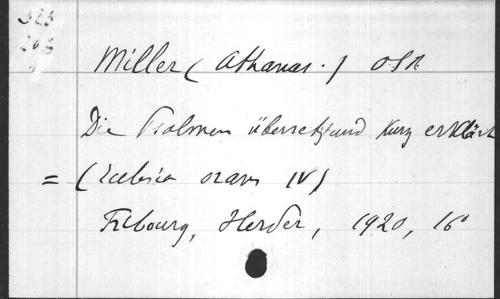 Miller (Athanas.) OSB
Die Psalmen übersetzt und kurz erklärt
= (Ecclesia orans IV)
Fribourg, Herder, 1920, 16°